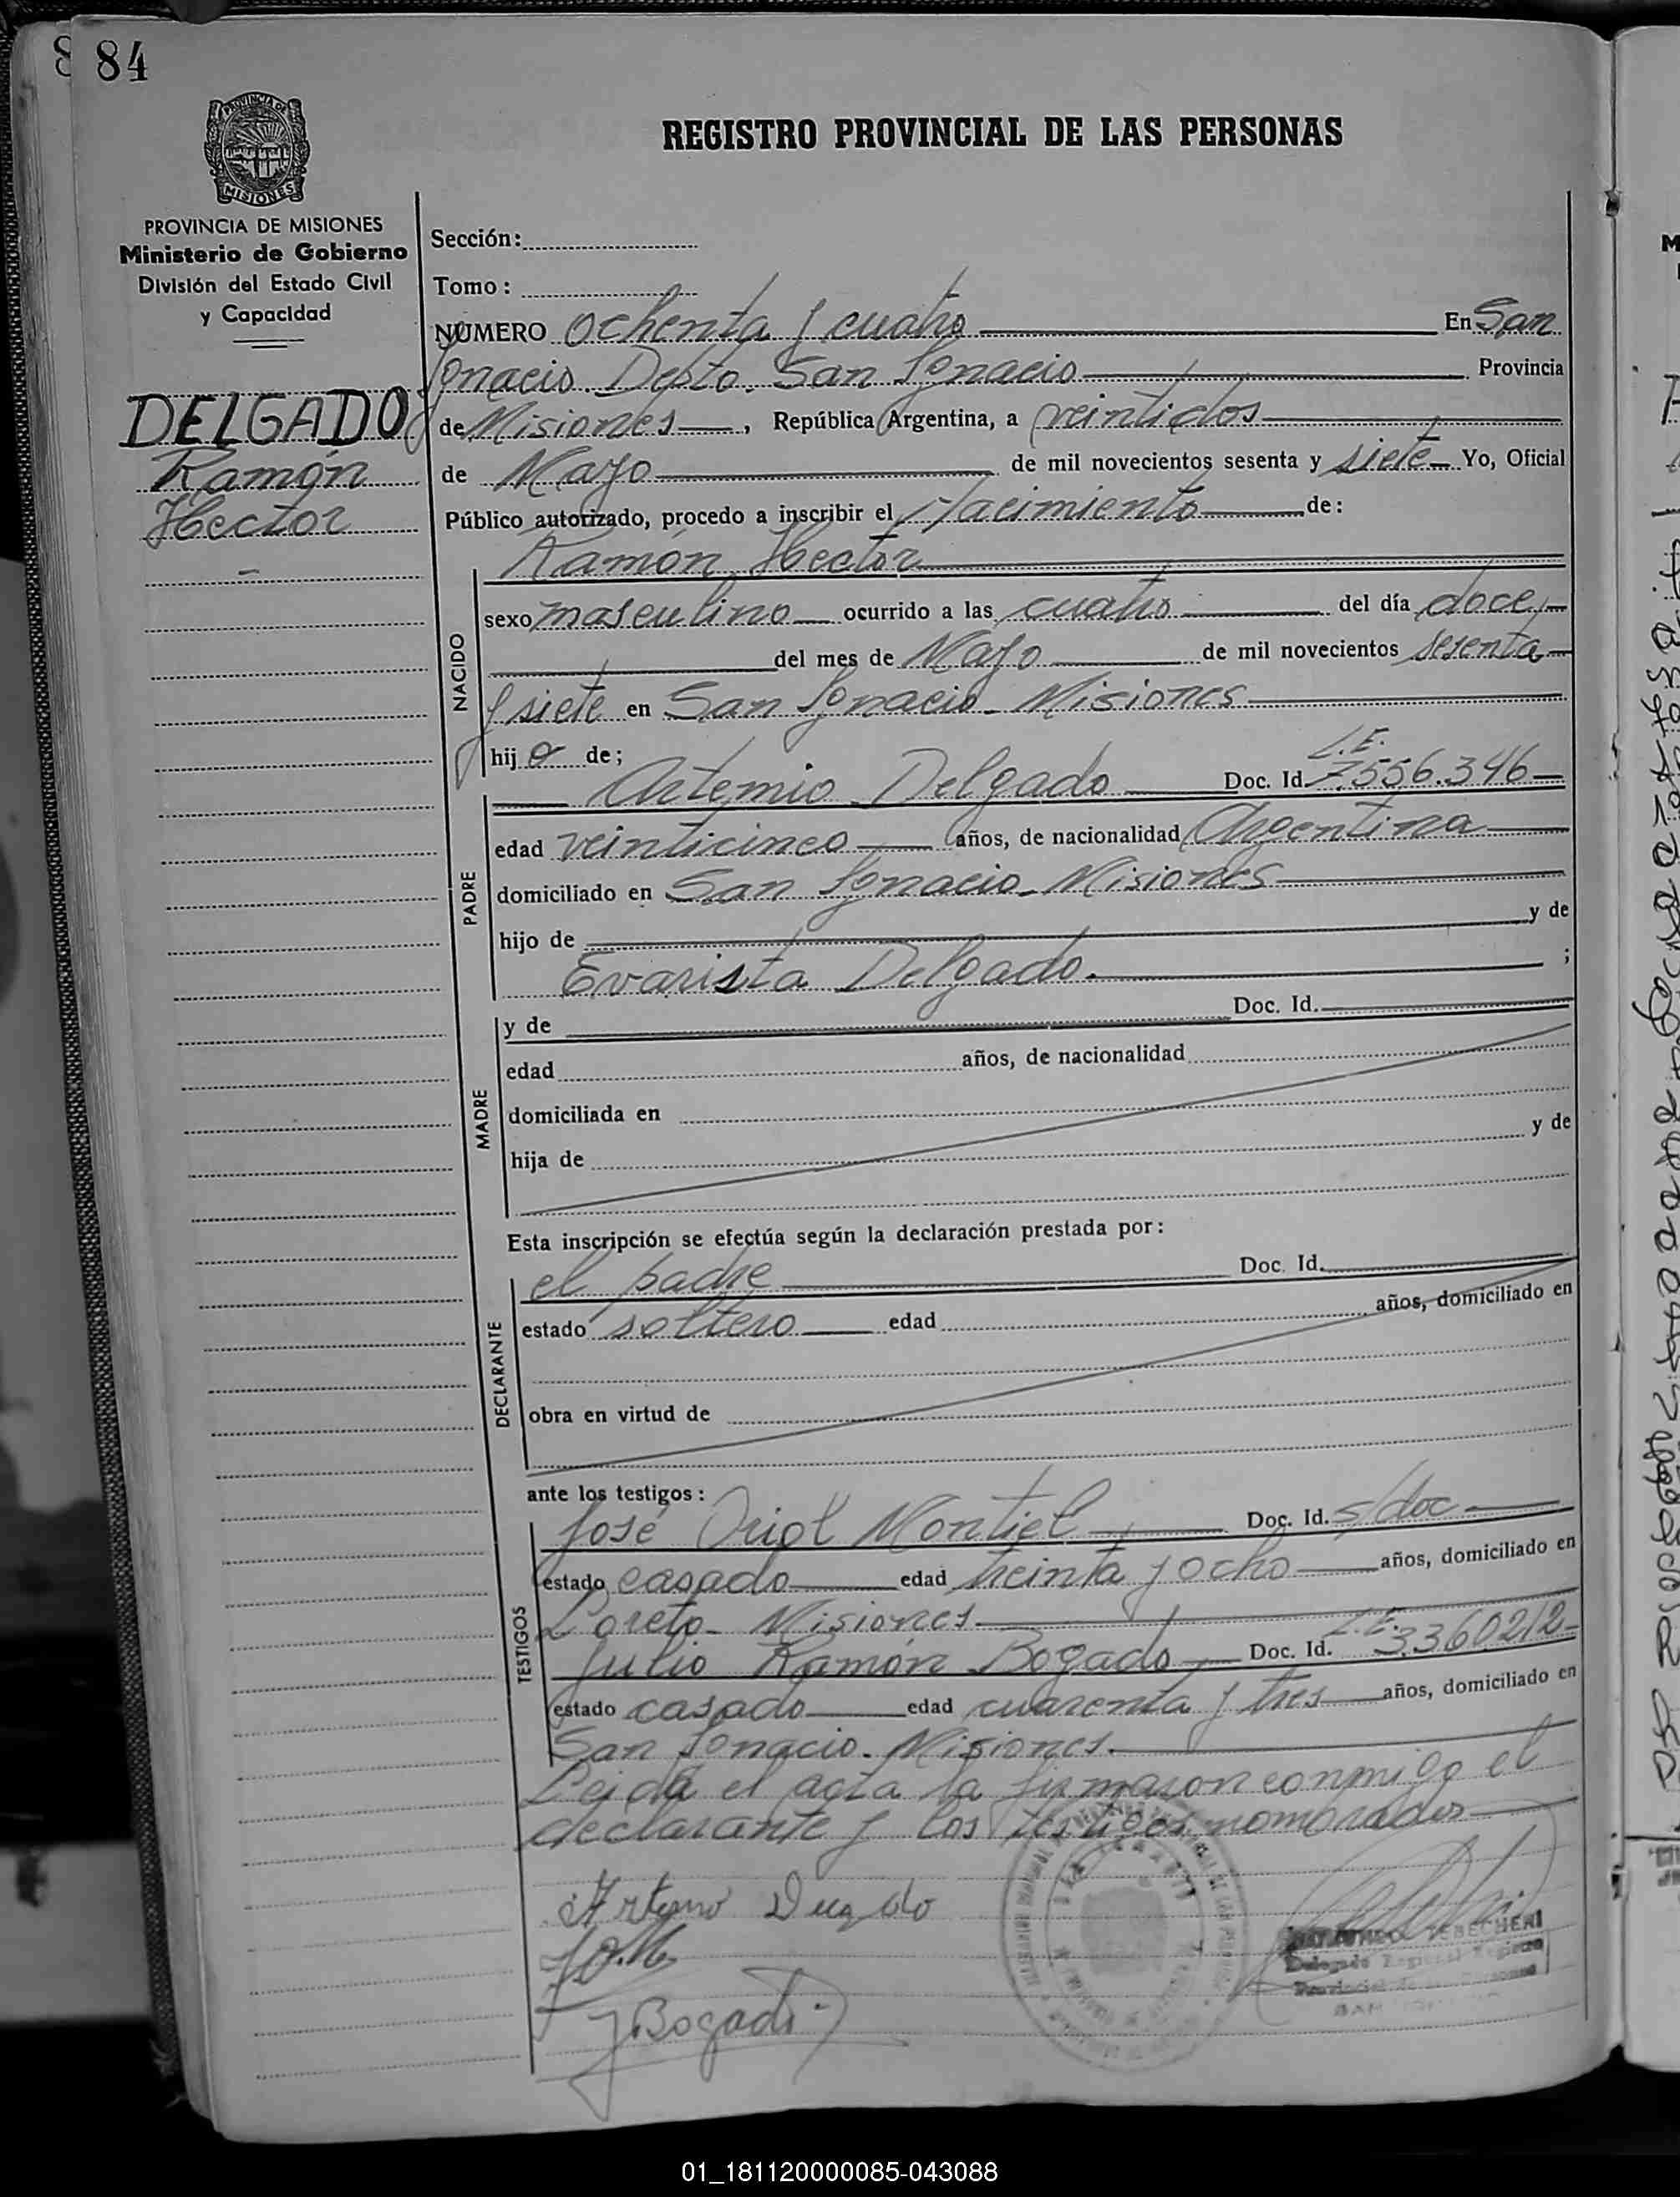 84
REGISTRO PROVINCIAL DE LAS PERSONAS
PROVINCIA DE
MISIONES
PROVINCIA DE MISIONES
Ministerio de Gobierno
División del Estado Civil
y Capacidad
DELGADO
Ramón
Hector
Sección:
Tomo:
NÚMERO Ochenta y cuatro En San
Ignacio Depto. San Ignacio Provincia
de Misiones, República Argentina, a veintidos
de Mayo de mil novecientos sesenta y siete Yo, Oficial
Público autorizado, procedo a inscribir el Nacimiento de:
Ramón Hector
NACIDO
sexo masculino ocurrido a las cuatro del día doce
del mes de Mayo de mil novecientos sesenta
y siete en San Ignacio - Misiones
hijo de;
L.E.
Artemio Delgado Doc. Id. 7.556.346
PADRE
edad veinticinco años, de nacionalidad Argentina
domiciliado en San Ignacio - Misiones
hijo de y de
Evarista Delgado. ;
MADRE
y de Doc. Id.
edad años, de nacionalidad
domiciliada en
hija de y de
Esta inscripción se efectúa según la declaración prestada por:
DECLARANTE
el padre Doc. Id.
estado soltero edad años, domiciliado en
obra en virtud de
ante los testigos:
TESTIGOS
José Oriol Montiel Doc. Id. s/doc
estado casado edad treinta y ocho años, domiciliado en
Loreto - Misiones.
Julio Ramón Bogado Doc. Id. L.E. 3360212
estado casado edad cuarenta y tres años, domiciliado en
San Ignacio. Misiones.
Leida el acta la firmaron conmigo el
declarante y los testigos nombrados
J.O.M.
J Bogado
Delegado Regional Registro
Provincial de las Personas
01_181120000085-043088